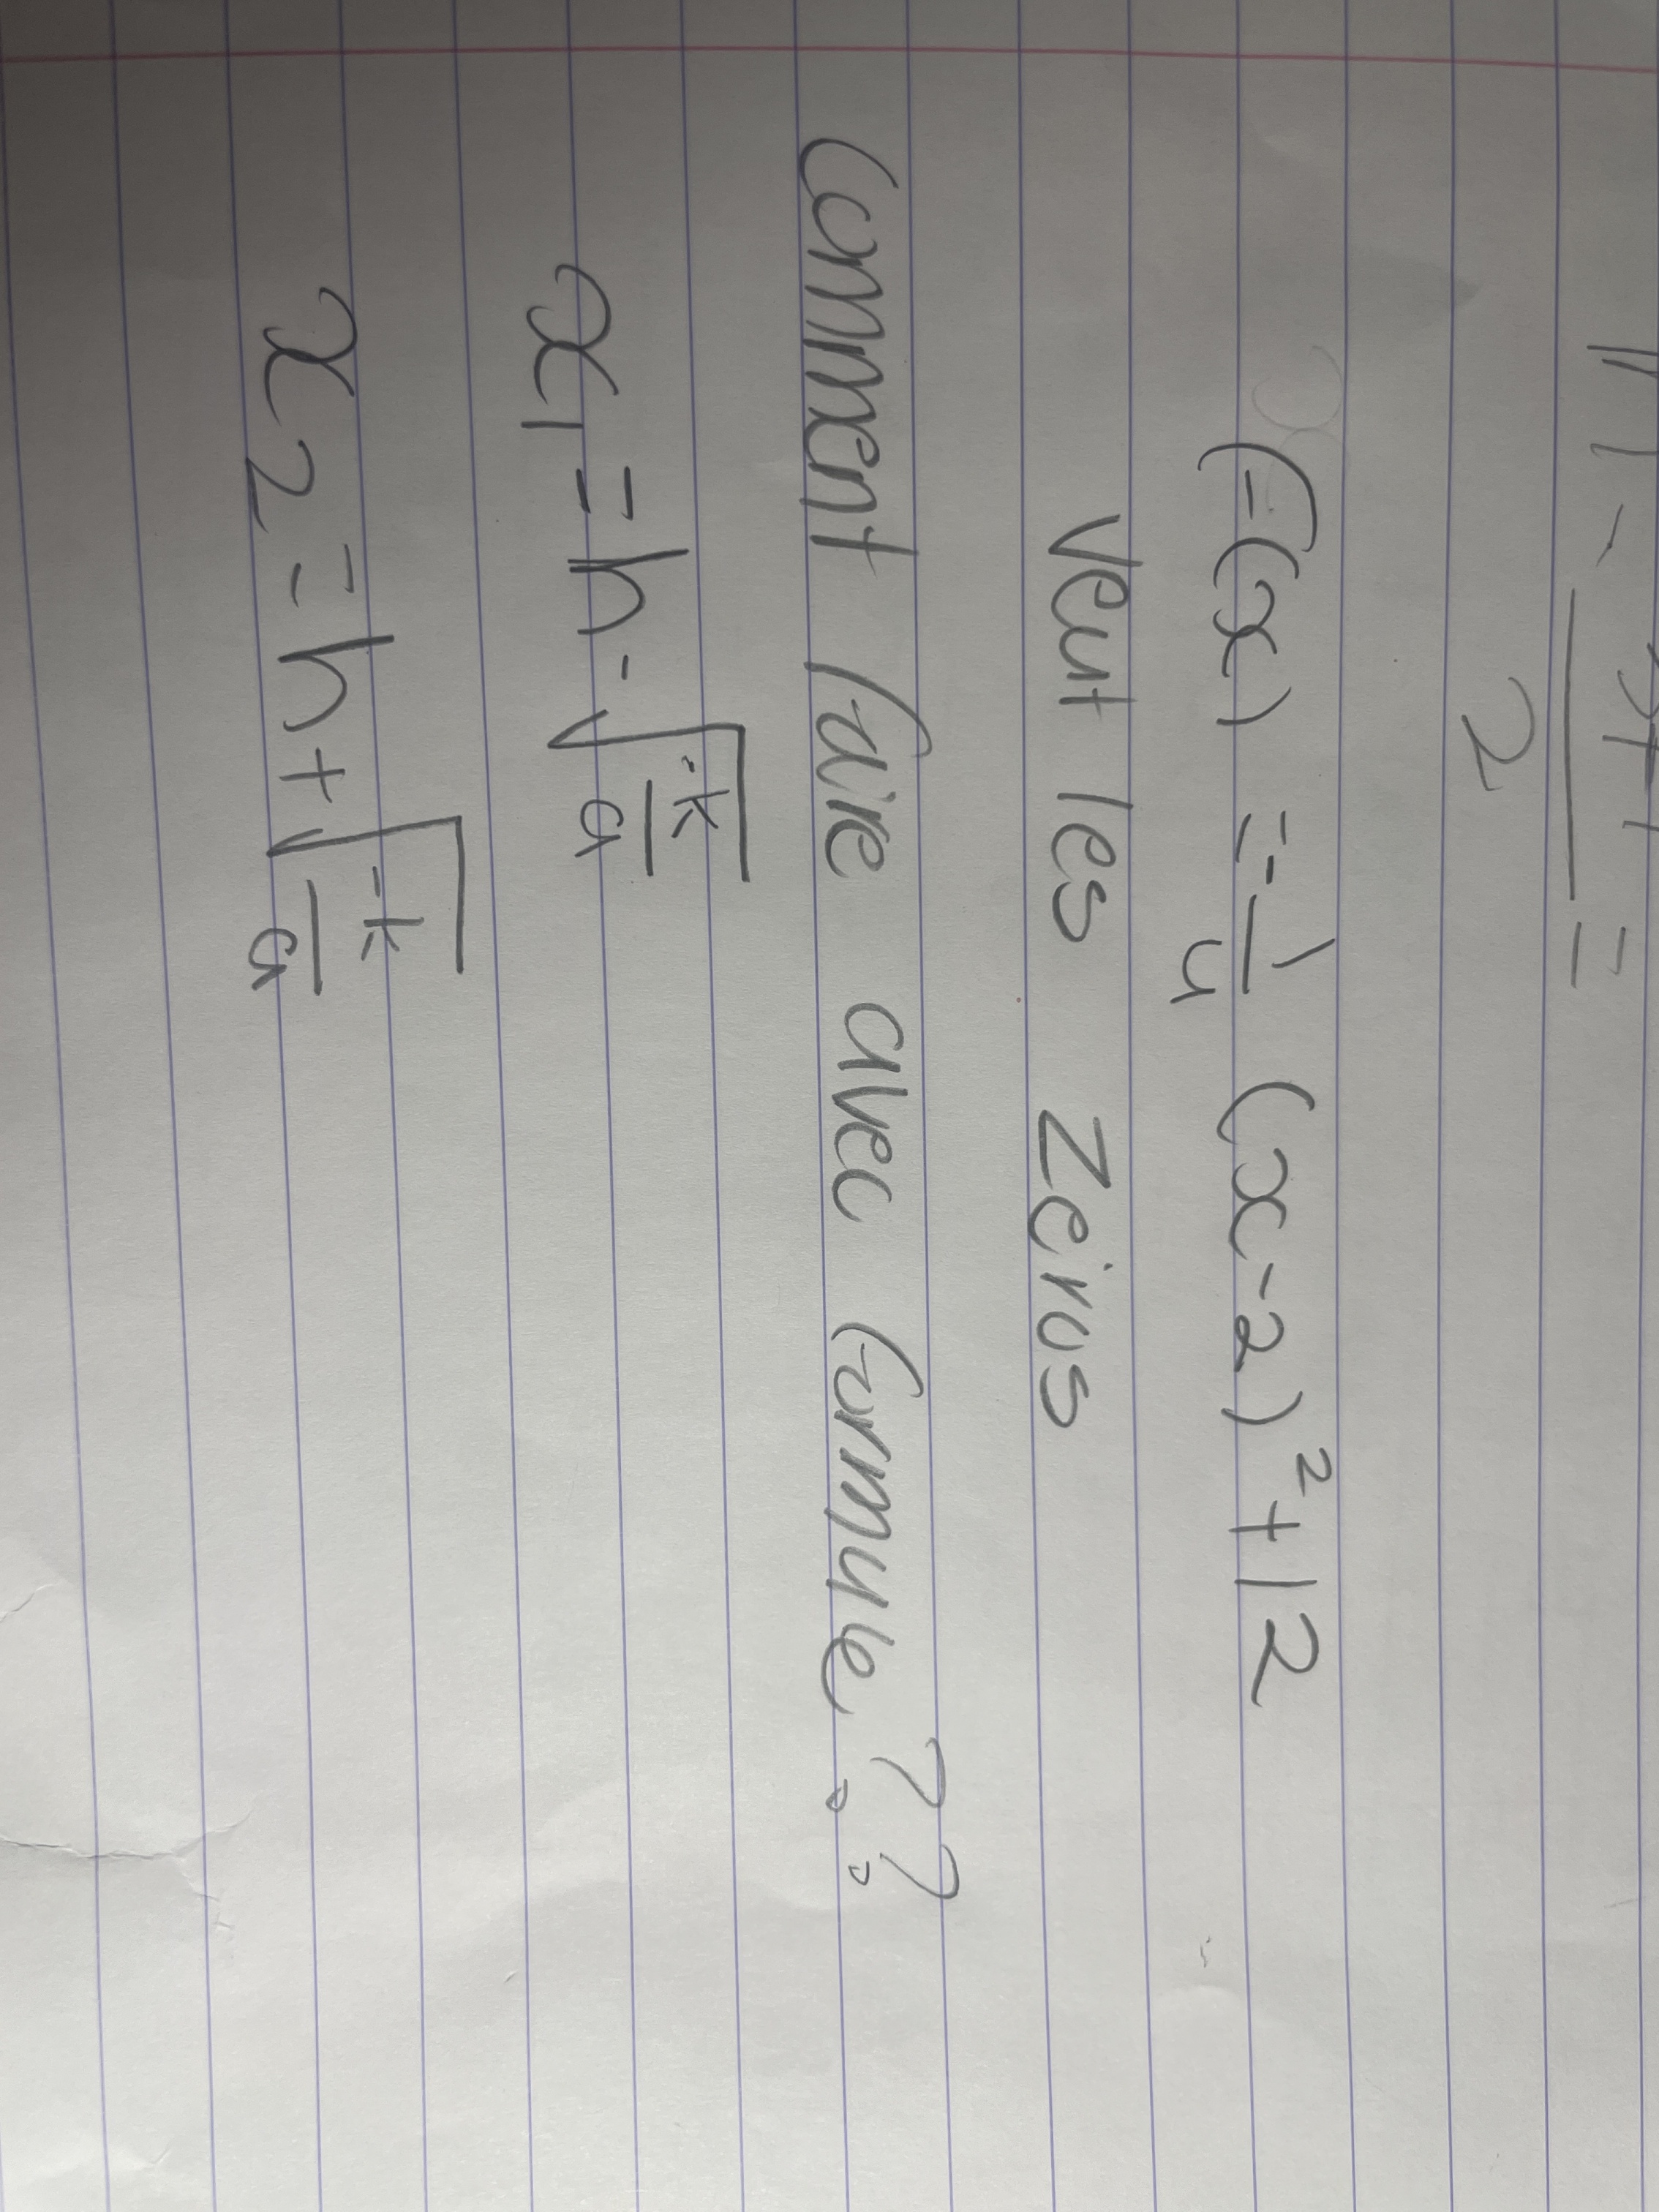 2
F(x) = -1/4 (x-2)² + 12
Veut les zéros
Comment faire avec formule ??
x1 = h - √(-k/a)
x2 = h + √(-k/a)